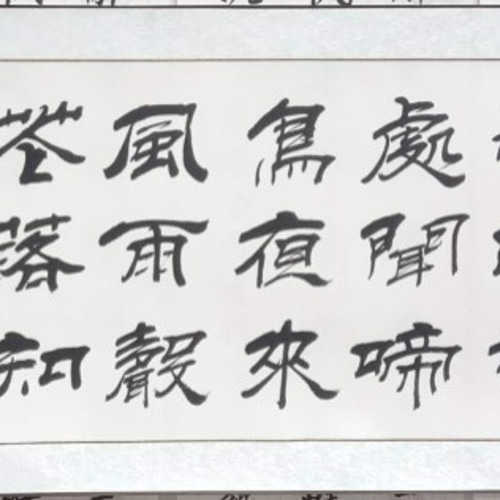 處聞啼
鳥夜來
風雨聲
花落知